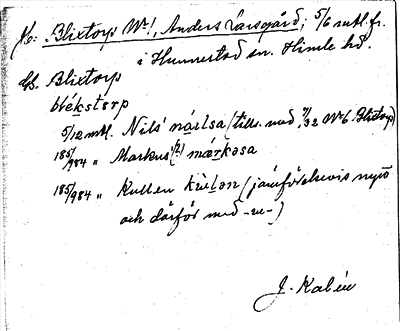 Hb: Blixtorp No 1, Anders Larsgård; 5/6 mtl. fr.
i Hunnestad sn. Himle hd.
Us. Blixtorp
blékstɐrp
5/12 mtl. Nils' nɑ́lsa (tills. med 7/32 No 6 Blixtorp)
185/984 " Markus' (2) mɑ́rkəsa
185/984 " Kullen kùlən (jämförelsevis nytt
och därför med -u-)
J. Kalén